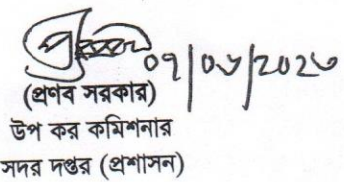 ০৭/০৮/২০২৩
(প্রণব সরকার)
উপ কর কমিশনার
সদর দপ্তর (প্রশাসন)